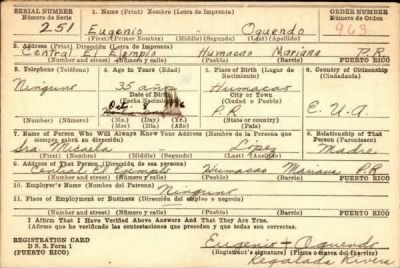 SERIAL NUMBER
Número de Serie
251
1. Name (Print) Nombre (Letra de Imprenta)
Eugenio - Oquendo
(First) (Primer Nombre) (Middle) (Segundo) (Last) (Apellido)
ORDER NUMBER
Número de Orden
963
2. Address (Print) Dirección (Letra de Imprenta)
Central El Ejemplo Humacao Mariana P.R
(Number and street) (Número y calle) PUERTO RICO
3. Telephone (Teléfono)
Ninguno
4. Age in Years (Edad)
35 años
Date of Birth
(Fecha Nacimiento)
Oct. 8
(Mo.) (Day) (Yr.)
(Mes) (Día) (Año)
5. Place of Birth (Lugar de Nacimiento)
Humacao
City or Town
(Ciudad o Pueblo)
P.R
(State or country)
6. Country of Citizenship
(Ciudadanía)
E.U.A
7. Name of Person Who Will Always Know Your Address (Nombre de la Persona que siempre sabrá su dirección)
López
(First) (Nombre) (Middle) (Segundo) (Last) (Apellido)
8. Relationship of That Person (Parentesco)
Madre
9. Address of That Person (Dirección de esa persona)
Central El Ejemplo Humacao Mariana P.R
(Number and street) (Número y calle) PUERTO RICO
10. Employer's Name (Nombre del Patrono)
Ninguno
11. Place of Employment or Business (Dirección del empleo o negocio)
(Number and street) (Número y calle) PUERTO RICO
I Affirm That I Have Verified Above Answers and That They Are True.
(Afirmo que he verificado las contestaciones que preceden y que todas son correctas.
REGISTRATION CARD
D. S. S. Form 1
(PUERTO RICO)
Eugenio + Oquendo
(Registrant's signature) (Firma o marca del inscrito)
Regalada Rivera